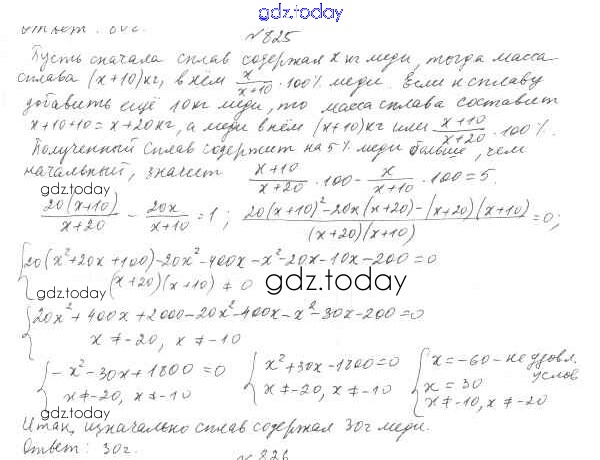 gdz.today
№825
Пусть сначала сплав содержал x кг меди, тогда масса
сплава (x+10) кг, в нём x/(x+10) · 100% меди. Если к сплаву
добавить ещё 10 кг меди, то масса сплава составит
x+10+10=x+20 кг, а меди в нём (x+10) кг или (x+10)/(x+20) · 100%.
Полученный сплав содержит на 5% меди больше, чем
начальный, значит (x+10)/(x+20) · 100 - x/(x+10) · 100 = 5.
gdz.today
20(x+10)/(x+20) - 20x/(x+10) = 1; (20(x+10)² - 20x(x+20) - (x+20)(x+10))/((x+20)(x+10)) = 0;
{20(x²+20x+100)-20x²-400x-x²-20x-10x-200=0
(x+20)(x+10) ≠ 0
gdz.today
gdz.today
{20x²+400x+2000-20x²-400x-x²-30x-200=0
x≠-20, x≠-10
{-x²-30x+1800=0 {x²+30x-1800=0 {x=-60 - не удовл. услов
x≠-20, x≠-10 x≠-20, x≠-10 x=30
x≠-10, x≠-20
Итак, изначально сплав содержал 30г меди.
gdz.today
Ответ: 30г.
№826
gdz.today